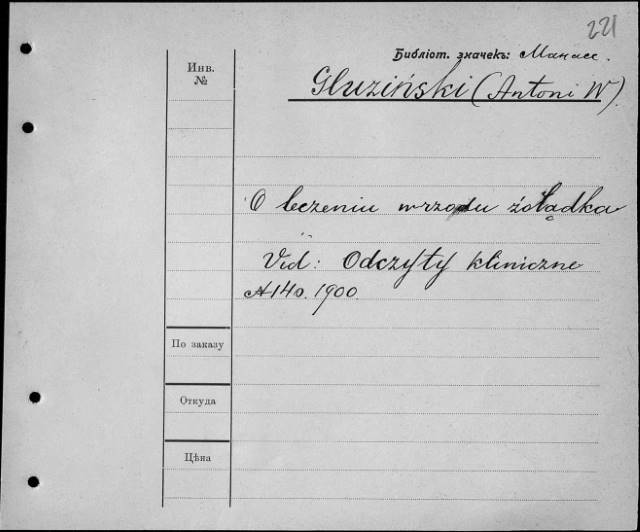 221
Библіот. значекъ: Манасс.
Инв.
№
Gluziński (Antoni W).
O leczeniu wrzodu żołądka
Vid: Odczyty kliniczne
№ 140. 1900.
По заказу
Откуда
Цѣна